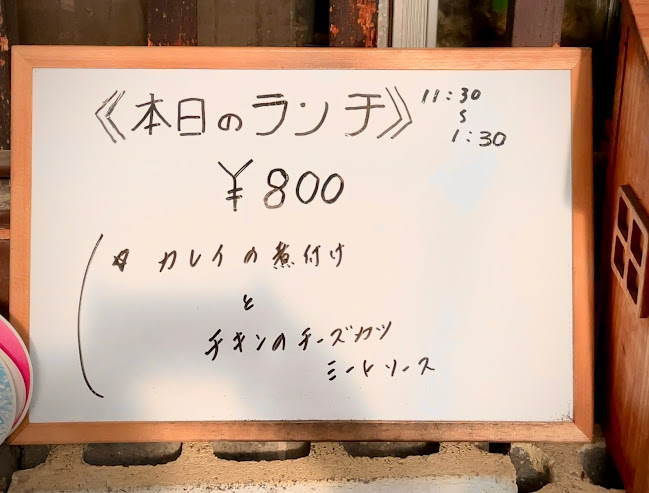 《本日のランチ》
11:30
〜
1:30
¥800
☆ カレイの煮付け
と
チキンのチーズカツ
ミートソース